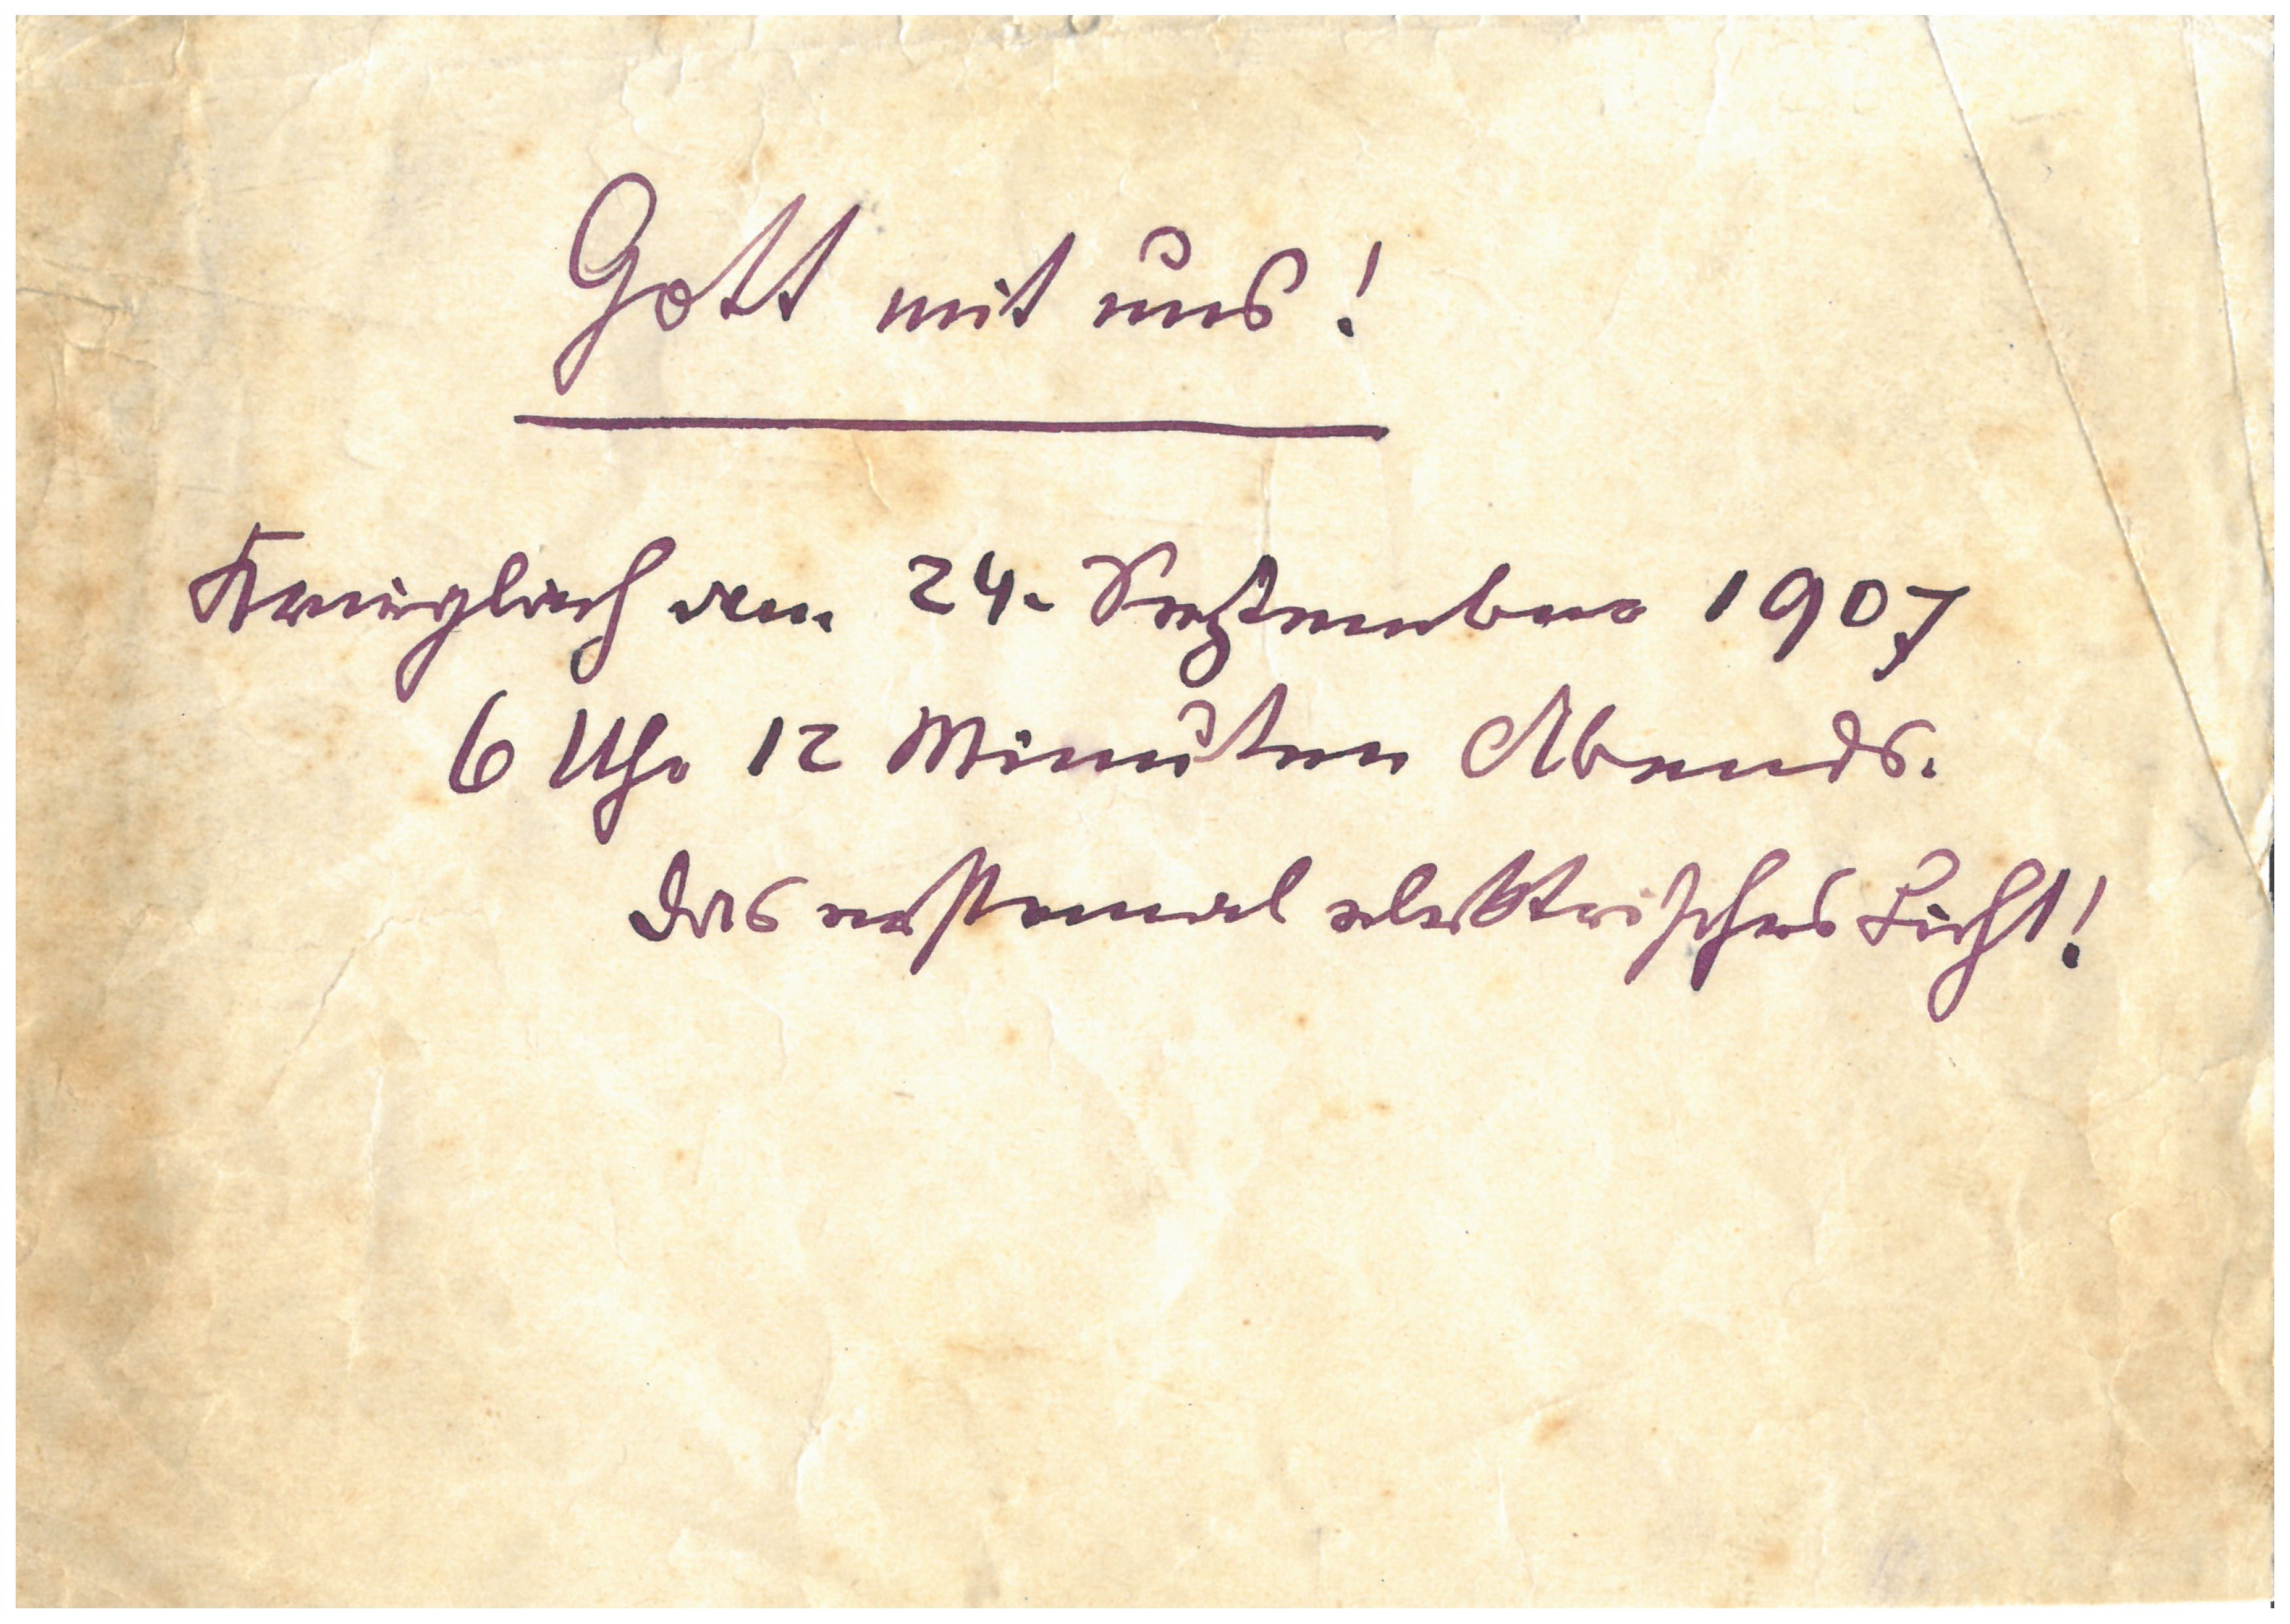 Gott mit uns!
Krieglach am 24. September 1907
6 Uhr 12 Minuten Abends.
Das erstemal elektrisches Licht!